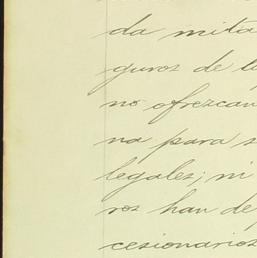 da mita
guros de
no ofrezcan
na para s
legales; ni
ros han de
cesionarios